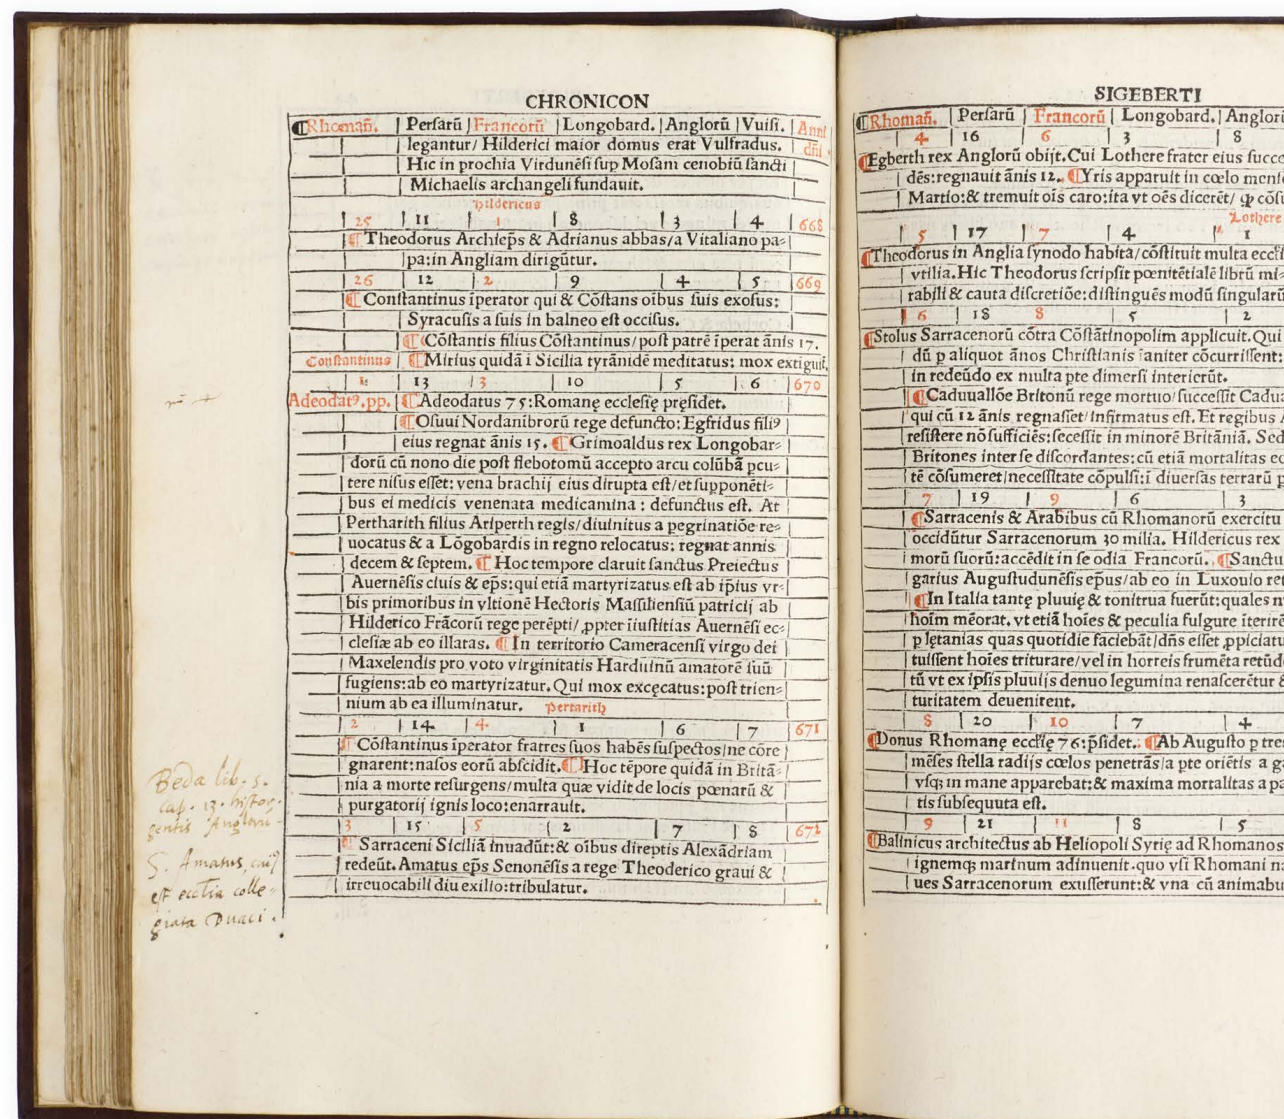 CHRONICON
¶Rhomañ. | Perſarū | Francorū | Longobard. | Anglorū | Vuiſi. | Anni dñi
legantur/ Hilderici maior domus erat Vulfradus.
Hic in prochia Virdunēſi ſup Moſam cenobiū ſancti
Michaelis archangeli fundauit.
Hildericus
25 | 11 | 1 | 8 | 3 | 4 | 668
¶Theodorus Archiep̄s & Adrianus abbas/a Vitaliano pa⸗
pa:in Angliam dirigūtur.
26 | 12 | 2 | 9 | 4 | 5 | 669
¶Conſtantinus īperator qui & Cōſtans oībus ſuis exoſus:
Syracuſis a ſuis in balneo eſt occiſus.
¶Cōſtantis filius Cōſtantinus/poſt patrē īperat ānis 17.
Conſtantinus | ¶Mitius quidā i Sicilia tyrānidē meditatus: mox extiguit.
1 | 13 | 3 | 10 | 5 | 6 | 670
Adeodatꝰ.pp. | ¶Adeodatus 75:Romanę eccleſię pręſidet.
¶Oſuui Nordanibrorū rege defuncto: Egfridus filiꝰ
eius regnat ānis 15. ¶Grimoaldus rex Longobar⸗
dorū cū nono die poſt flebotomū accepto arcu colūbā pcu⸗
tere niſus eſſet: vena brachij eius dirupta eſt/et ſupponēti⸗
bus ei medicis venenata medicamina : defunctus eſt. At
Pertharith filius Ariperth regis/diuinitus a pegrinatiōe re⸗
uocatus & a Lōgobardis in regno relocatus: regnat annis
decem & ſeptem. ¶Hoc tempore claruit ſanctus Preiectus
Auernēſis ciuis & ep̄s:qui etiā martyrizatus eſt ab ip̄ius vr⸗
bis primoribus in vltionē Hectoris Maſſilienſiū patricij ab
Hilderico Frācorū rege perēpti/ꝓpter iiuſtitias Auernēſi ec⸗
cleſiæ ab eo illatas. ¶In territorio Cameracenſi virgo dei
Maxelendis pro voto virginitatis Harduinū amatorē ſuū
fugiens:ab eo martyrizatur. Qui mox excęcatus:poſt trien⸗
nium ab ea illuminatur. Pertarith
2 | 14 | 4 | 1 | 6 | 7 | 671
¶Cōſtantinus īperator fratres ſuos habēs ſuſpectos/ne cōre
gnarent:naſos eorū abſcidit. ¶Hoc tēpore quidā in Britā⸗
nia a morte reſurgens/multa quæ vidit de locis pœnarū &
purgatorij ignis loco:enarrauit.
3 | 15 | 5 | 2 | 7 | 8 | 672
¶Sarraceni Siciliā inuadūt:& oībus direptis Alexādriam
redeūt. Amatus ep̄s Senonēſis a rege Theoderico graui &
irreuocabili diu exilio:tribulatur.
Beda lib. 5.
cap. 13. histor.
gentis Anglorū
S. Amatus, cuiꝰ
est ecctia colle⸗
giata Duaci.
SIGEBERTI
¶Rhomañ. | Perſarū | Francorū | Longobard. | Anglorū
4 | 16 | 6 | 3 | 8
¶Egberth rex Anglorū obijt. Cui Lothere frater eius ſucce
dēs:regnauit ānis 12. ¶Yris apparuit in cœlo menſe
Martio:& tremuit oīs caro:ita vt oēs dicerēt/ ꝙ cōſu
Lothere
5 | 17 | 7 | 4 | 1
¶Theodorus in Anglia ſynodo habita/cōſtituit multa eccl̄i
vtilia. Hic Theodorus ſcripſit pœnitētialē librū mi⸗
rabili & cauta diſcretiōe:diſtinguēs modū ſingularū
6 | 18 | 8 | 5 | 2
¶Stolus Sarracenorū cōtra Cōſtātinopolim applicuit. Qui
dū p aliquot ānos Chriſtianis īaniter cōcurriſſent:
in redeūdo ex multa pte dimerſi interierūt.
¶Caduuallōe Britonū rege mortuo/ſucceſſit Cadua
qui cū 12 ānis regnaſſet/infirmatus eſt. Et regibus A
reſiſtere nō ſufficiēs:ſeceſſit in minorē Britāniā. Sed
Britones inter ſe diſcordantes:cū etiā mortalitas eo
tē cōſumeret/neceſſitate cōpulſi:i diuerſas terrarū p
7 | 19 | 9 | 6 | 3
¶Sarracenis & Arabibus cū Rhomanorū exercitu
occidūtur Sarracenorum 30 milia. Hildericus rex
morū ſuorū:accēdit in ſe odia Francorū. ¶Sanctu
garius Auguſtudunēſis ep̄us/ab eo in Luxouio ret
¶In Italia tantę pluuię & tonitrua fuerūt:quales n
hoīm mēorat. vt etiā hoīes & peculia fulgure īterirē
p lętanias quas quotidie faciebāt/dn̄s eſſet ꝓpiciatu
tuiſſent hoīes triturare/vel in horreis frumēta retūde
tū vt ex ipſis pluuijs denuo legumina renaſcerētur &
turitatem deuenirent.
8 | 20 | 10 | 7 | 4
¶Donus Rhomanę eccl̄ię 76:p̄ſidet. ¶Ab Auguſto p tres
mēſes ſtella radijs cœlos penetrās/a pte oriētis a ga
vſq; in mane apparebat:& maxima mortalitas a pa
tis ſubſequuta eſt.
9 | 21 | 11 | 8 | 5
¶Balinicus architectus ab Heliopoli Syrię ad Rhomanos
ignemq; marinum adinuenit.quo vſi Rhomani na
ues Sarracenorum exuſſerunt:& vna cū animabu